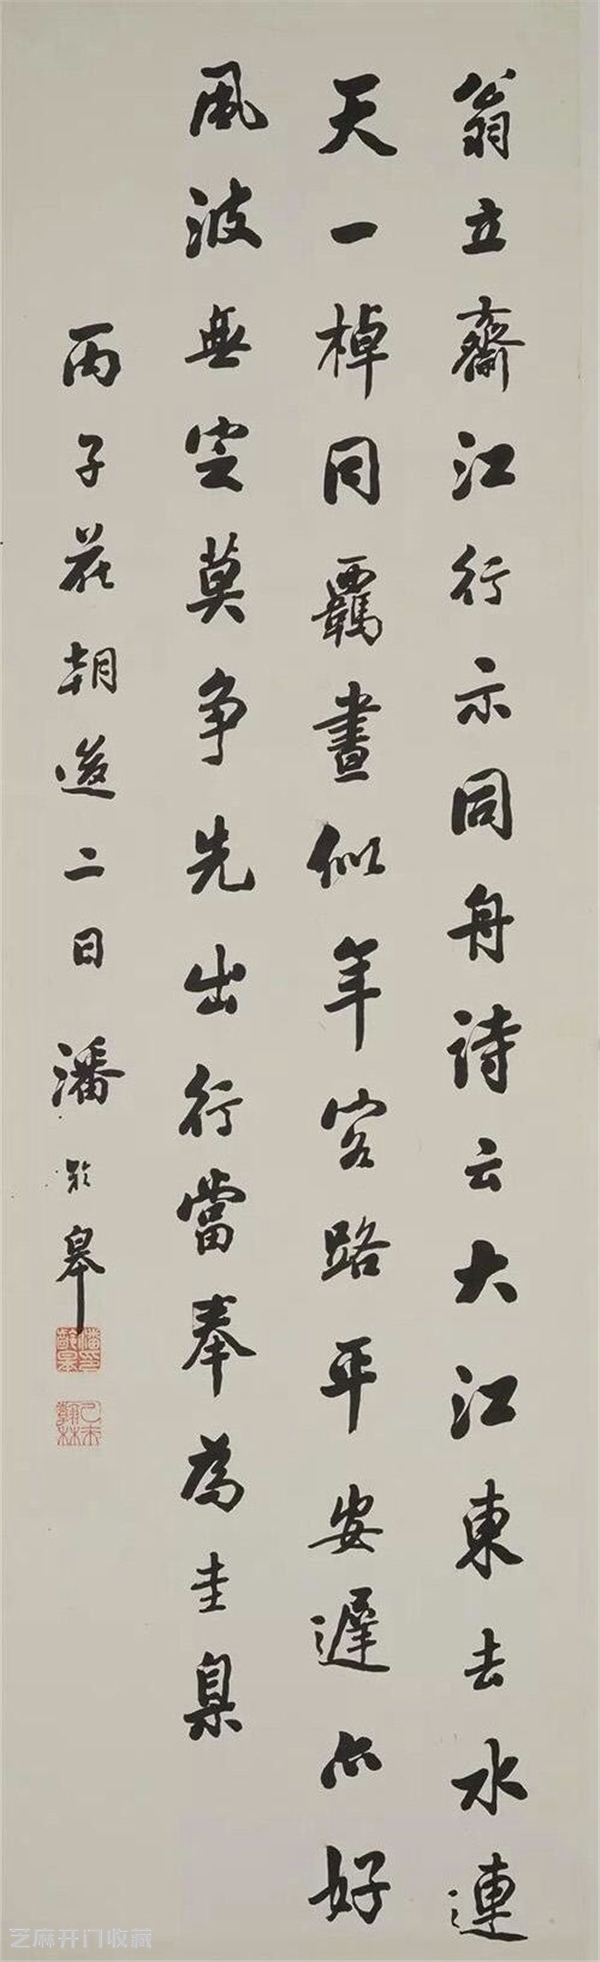 翁立齋江行示同舟詩云大江東去水連
天一棹同羈晝似年客路平安遲亦好
風波無定莫争先出行當奉為圭臬
丙子花朝後二日潘齡皋
潘印齡皋
乙未翰林
芝麻开门收藏